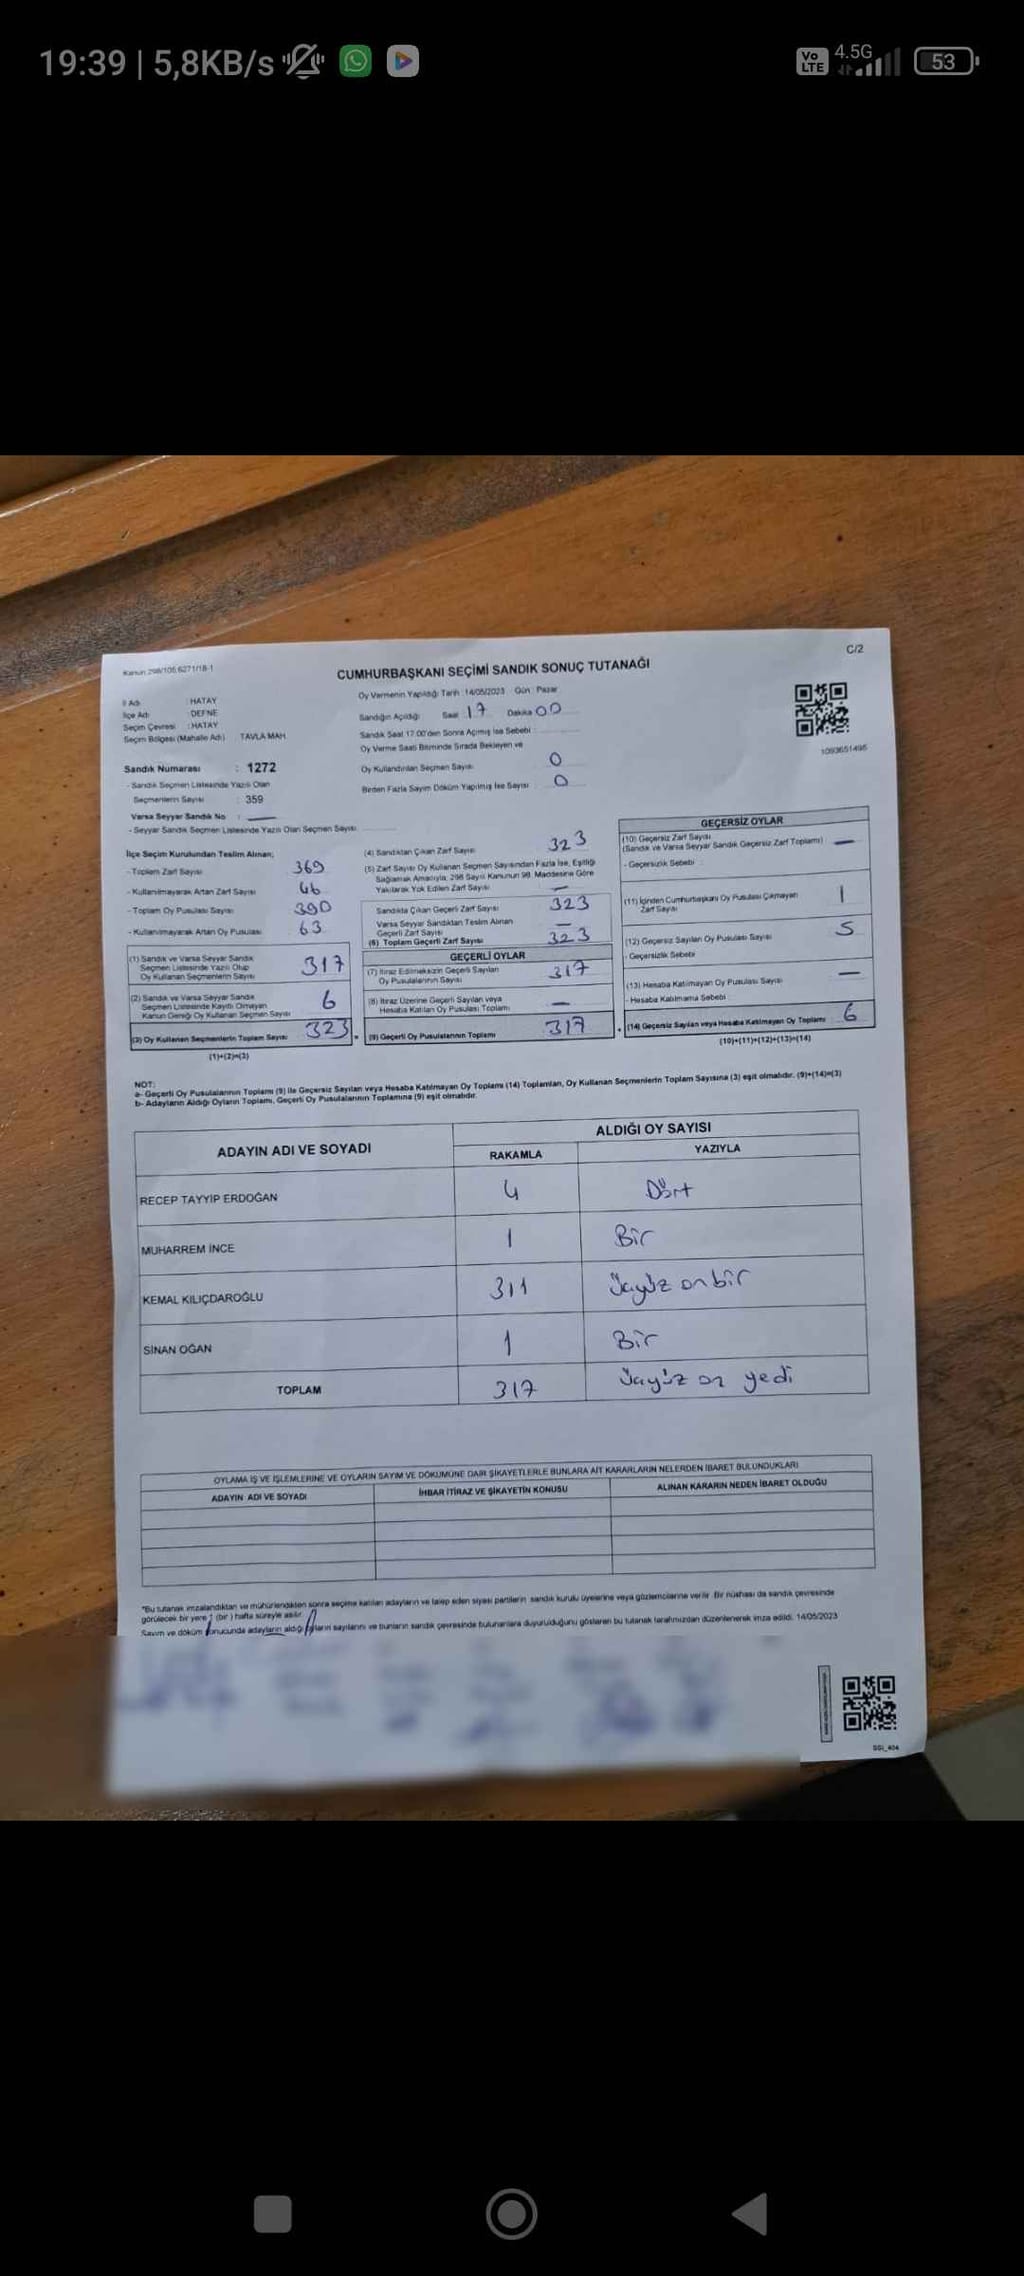 19:39 | 5,8KB/s
Vo LTE 4.5G 53
C/2
Kanun 298/105 6271/18-1
CUMHURBAŞKANI SEÇİMİ SANDIK SONUÇ TUTANAĞI
İl Adı : HATAY
İlçe Adı : DEFNE
Seçim Çevresi : HATAY
Seçim Bölgesi (Mahalle Adı) TAVLA MAH.
Sandık Numarası : 1272
- Sandık Seçmen Listesinde Yazılı Olan
Seçmenlerin Sayısı : 359
Varsa Seyyar Sandık No : —
- Seyyar Sandık Seçmen Listesinde Yazılı Olan Seçmen Sayısı
Oy Vermenin Yapıldığı Tarih 14/05/2023 Gün : Pazar
Sandığın Açıldığı Saat 17 Dakika 00
Sandık Saat 17:00'den Sonra Açılmış İse Sebebi :
Oy Verme Saati Bitiminde Sırada Bekleyen ve
Oy Kullandırılan Seçmen Sayısı 0
Birden Fazla Sayım Döküm Yapılmış İse Sayısı 0
1093651495
İlçe Seçim Kurulundan Teslim Alınan;
- Toplam Zarf Sayısı 369
- Kullanılmayarak Artan Zarf Sayısı 46
- Toplam Oy Pusulası Sayısı 390
- Kullanılmayarak Artan Oy Pusulası 63
(1) Sandık ve Varsa Seyyar Sandık
Seçmen Listesinde Yazılı Olup
Oy Kullanan Seçmenlerin Sayısı 317
(2) Sandık ve Varsa Seyyar Sandık
Seçmen Listesinde Kayıtlı Olmayan
Kanun Gereği Oy Kullanan Seçmen Sayısı 6
(3) Oy Kullanan Seçmenlerin Toplam Sayısı 323
(1)+(2)=(3)
(4) Sandıktan Çıkan Zarf Sayısı 323
(5) Zarf Sayısı Oy Kullanan Seçmen Sayısından Fazla İse, Eşitliği
Sağlamak Amacıyla, 298 Sayılı Kanunun 98. Maddesine Göre
Yakılarak Yok Edilen Zarf Sayısı —
Sandıkta Çıkan Geçerli Zarf Sayısı 323
Varsa Seyyar Sandıktan Teslim Alınan
Geçerli Zarf Sayısı —
(6) Toplam Geçerli Zarf Sayısı 323
GEÇERLİ OYLAR
(7) İtiraz Edilmeksizin Geçerli Sayılan
Oy Pusulalarının Sayısı 317
(8) İtiraz Üzerine Geçerli Sayılan veya
Hesaba Katılan Oy Pusulası Toplamı —
(9) Geçerli Oy Pusulalarının Toplamı 317
GEÇERSİZ OYLAR
(10) Geçersiz Zarf Sayısı
(Sandık ve Varsa Seyyar Sandık Geçersiz Zarf Toplamı) —
- Geçersizlik Sebebi :
(11) İçinden Cumhurbaşkanı Oy Pusulası Çıkmayan
Zarf Sayısı 1
(12) Geçersiz Sayılan Oy Pusulası Sayısı 5
- Geçersizlik Sebebi
(13) Hesaba Katılmayan Oy Pusulası Sayısı —
- Hesaba Katılmama Sebebi
(14) Geçersiz Sayılan veya Hesaba Katılmayan Oy Toplamı 6
(10)+(11)+(12)+(13)=(14)
NOT:
a- Geçerli Oy Pusulalarının Toplamı (9) ile Geçersiz Sayılan veya Hesaba Katılmayan Oy Toplamı (14) Toplamları, Oy Kullanan Seçmenlerin Toplam Sayısına (3) eşit olmalıdır. (9)+(14)=(3)
b- Adayların Aldığı Oyların Toplamı, Geçerli Oy Pusulalarının Toplamına (9) eşit olmalıdır.
ADAYIN ADI VE SOYADI ALDIĞI OY SAYISI
RAKAMLA YAZIYLA
RECEP TAYYIP ERDOĞAN 4 Dört
MUHARREM İNCE 1 Bir
KEMAL KILIÇDAROĞLU 311 Üçyüz on bir
SİNAN OĞAN 1 Bir
TOPLAM 317 Üçyüz on yedi
OYLAMA İŞ VE İŞLEMLERİNE VE OYLARIN SAYIM VE DÖKÜMÜNE DAİR ŞİKAYETLERLE BUNLARA AİT KARARLARIN NELERDEN İBARET BULUNDUKLARI
ADAYIN ADI VE SOYADI İHBAR İTİRAZ VE ŞİKAYETİN KONUSU ALINAN KARARIN NEDEN İBARET OLDUĞU
"Bu tutanak imzalandıktan ve mühürlendikten sonra seçime katılan adayların ve talep eden siyasi partilerin sandık kurulu üyelerine veya gözlemcilerine verilir. Bir nüshası da sandık çevresinde
görülecek bir yere 1 (bir) hafta süreyle asılır.
Sayım ve döküm sonucunda adayların aldığı oyların sayılarını ve bunların sandık çevresinde bulunanlara duyurulduğunu gösteren bu tutanak tarafımızdan düzenlenerek imza edildi. 14/05/2023